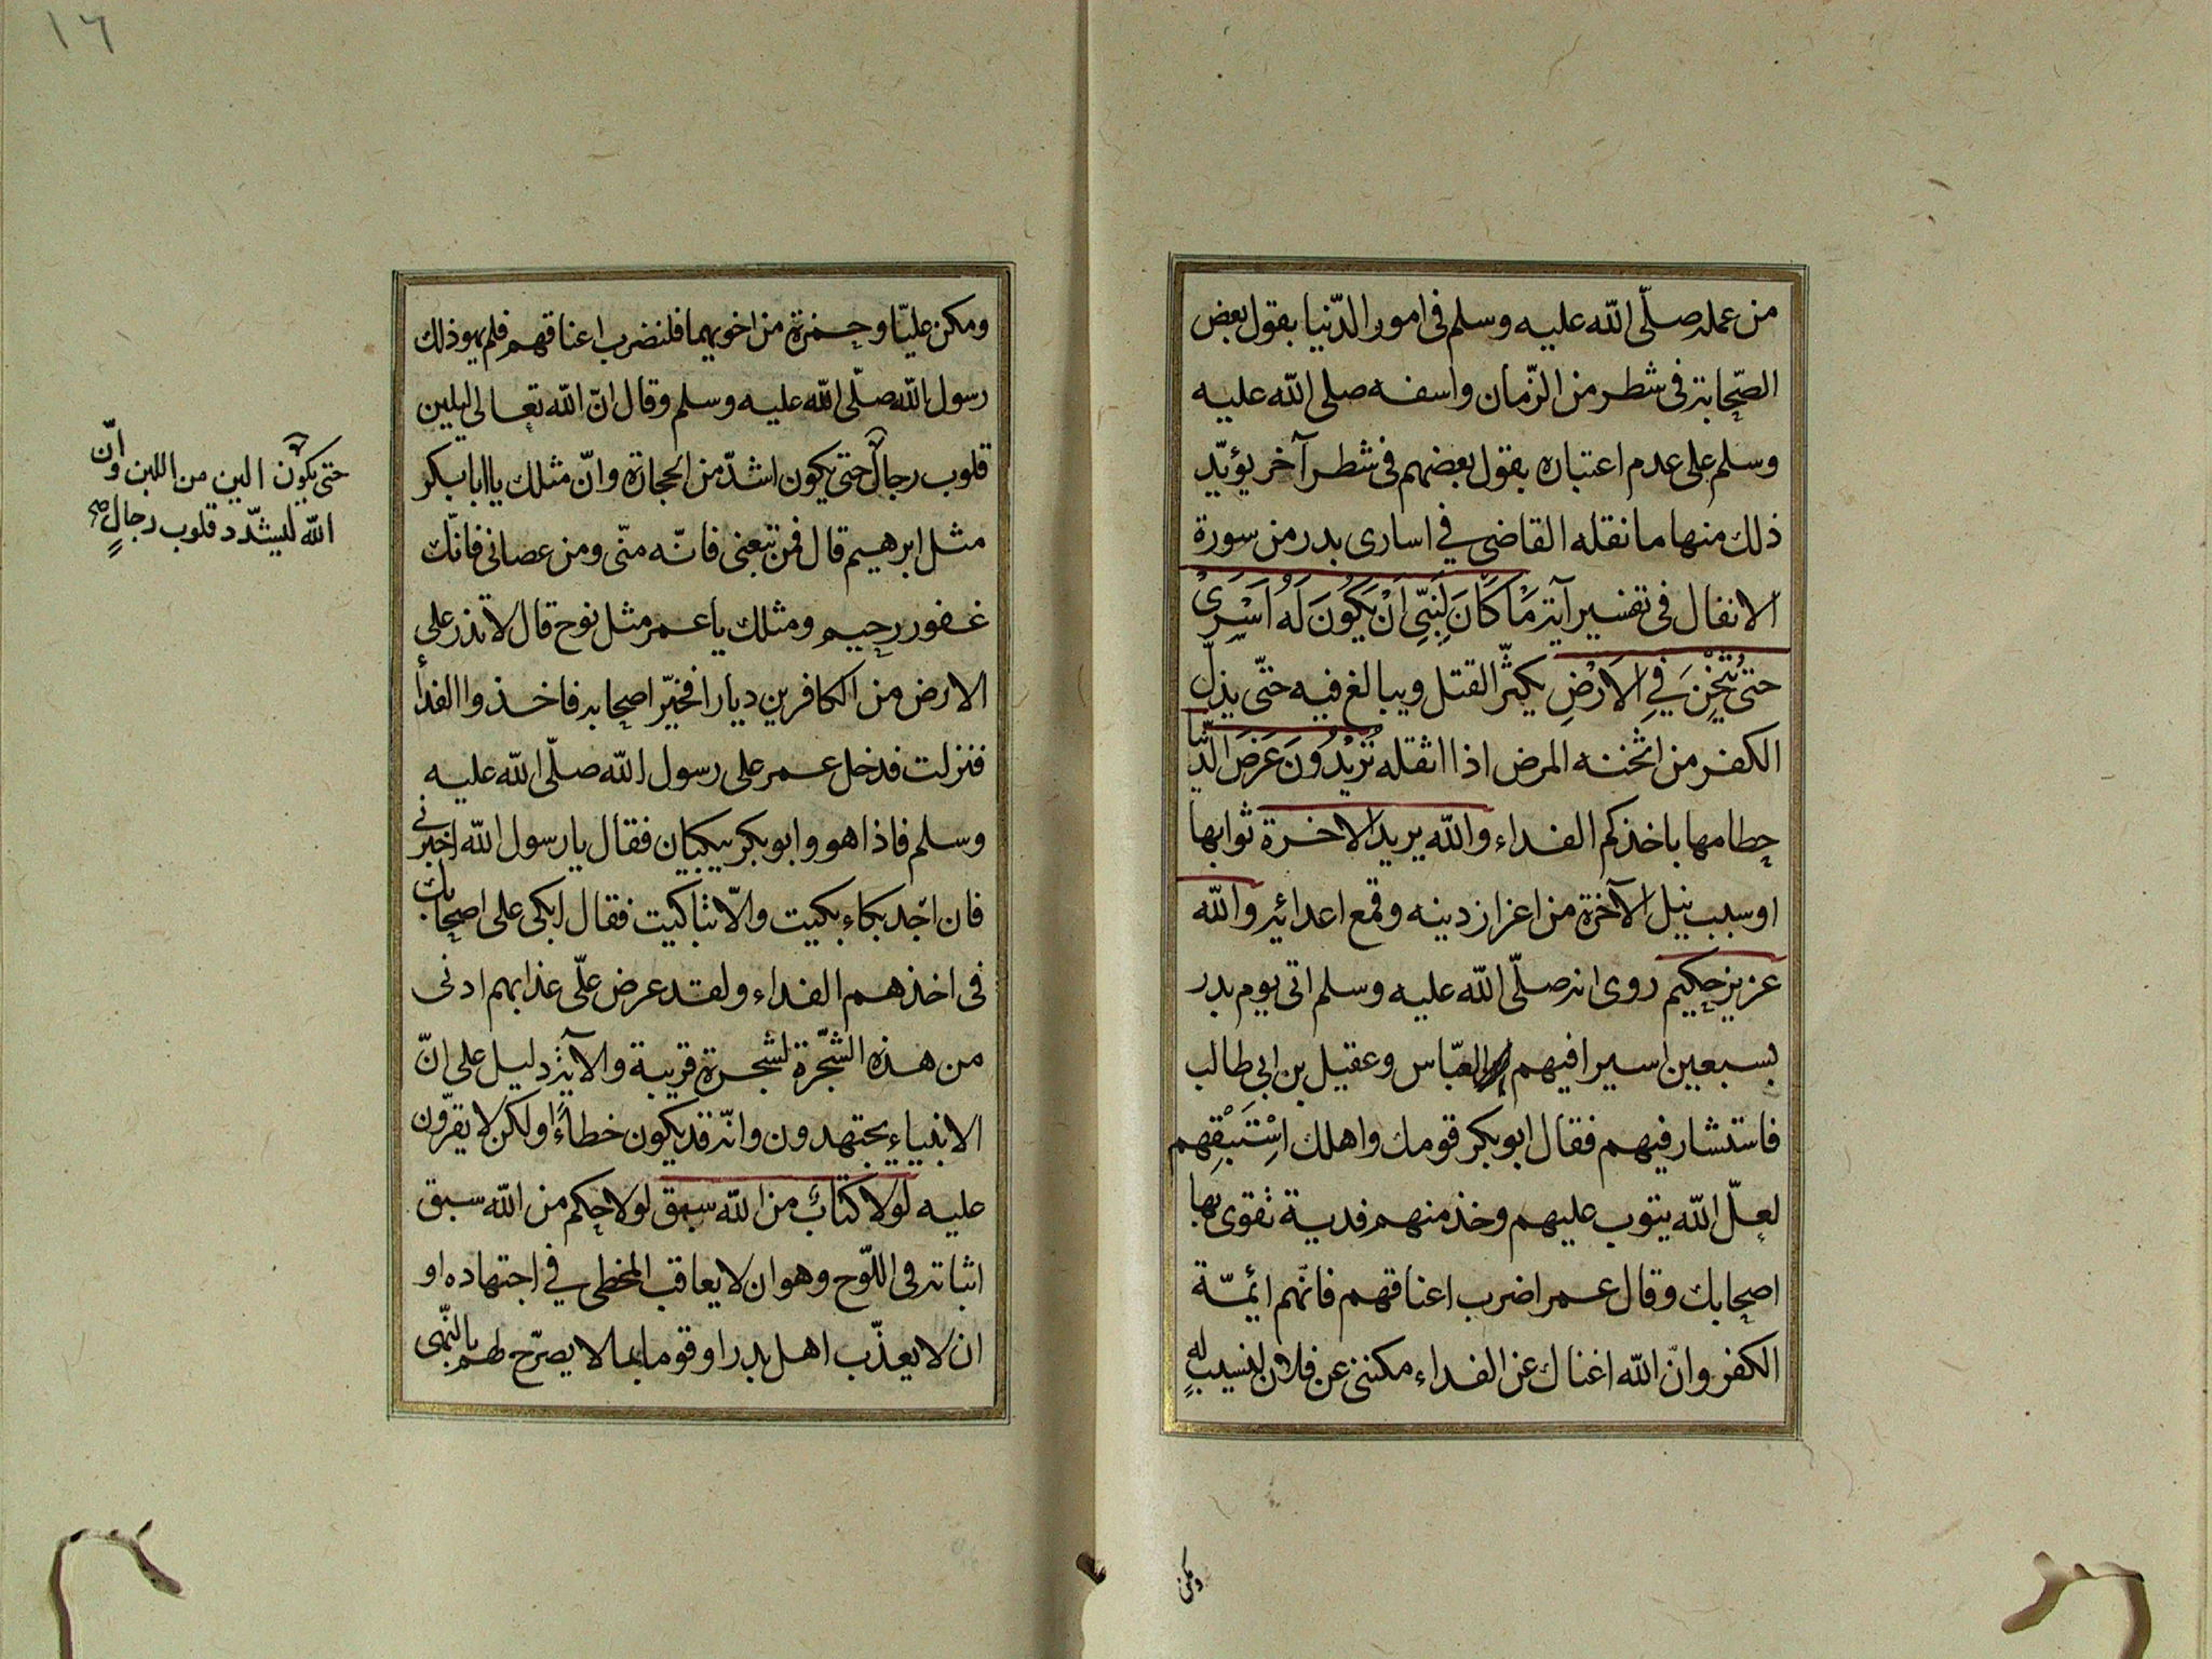 من عمله صلّى الله عليه وسلم فى امور الدّنيا بقول بعض
الصّحابة فى شطر من الزّمان واسفه صلى الله عليه
وسلم على عدم اعتباره بقول بعضهم فى شطر آخر يؤيّد
ذلك منها ما نقله القاضى في اسارى بدر من سورة
الانفال فى تفسير آية مَا كَانَ لِنَبِّىِ اَنْ يَكُونَ لَهُ اَسْرَىْ
حتىّ يُثْخِنَ فِي الاَرْضِ يكثّر القتل ويبالغ فيه حتّى يذلّ
الكفر من اثخنه المرض اذا اثقله تُرِيْدُونَ عَرَضَ الدُّنْيَا
حطامها باخذكم الفداء والله يريد الاخرة ثوابها
او سبب نيل الآخرة من اعزاز دينه وقمع اعدائه والله
عزيز حكيم روى انه صلّى الله عليه وسلم اتى يوم بدر
بسبعين اسيرا فيهم العبّاس وعقيل بن ابي طالب
فاستشار فيهم فقال ابو بكر قومك واهلك اِسْتَبْقِهم
لعلّ الله يتوب عليهم وخذ منهم فدية تقوى بها
اصحابك وقال عمر اضرب اعناقهم فانّهم ائمّة
الكفر وانّ الله اغناك عن الفداء مكننى عن فلان لنسيبٍ له
ومكن
١٦
ومكن عليّا وحمزة من اخويهما فلنضرب اعناقهم فلم يهو ذلك
رسول الله صلّى الله عليه وسلم وقال انّ الله تعالى ليلين
قلوب رجال حتى يكون اشدّ من الحجارة وانّ مثلك يا ابا بكر
مثل ابرهيم قال فمن تبعنى فانّه منّى ومن عصانى فانّك
غفور رحيم ومثلك يا عمر مثل نوح قال لا تذر على
الارض من الكافرين ديارا فخيّر اصحابه فاخذوا الفدأ
فنزلت فدخل عمر على رسول الله صلّى الله عليه
وسلم فاذا هو وابو بكر يبكيان فقال يا رسول الله اخبرنى
فان اجد بكاء بكيت والّا تباكيت فقال ابكى على اصحابك
فى اخذهم الفداء ولقد عرض علّى عذابهم ادنى
من هذه الشّجرة لشجرة قريبة والآية دليل على انّ
الانبياء يجتهدون وانّه قد يكون خطاءً ولكن لا يقرّون
عليه لولا كتابٌ من الله سبق لولا حكم من الله سبق
اثباته فى اللّوح وهو ان لا يعاقب المخطى في اجتهاده او
ان لا يعذّب اهل بدر او قوما بما لا يصرّح لهم بالنّهى
حتى يكون الين من اللبن وانّ
الله ليشدّد قلوب رجالٍ صح